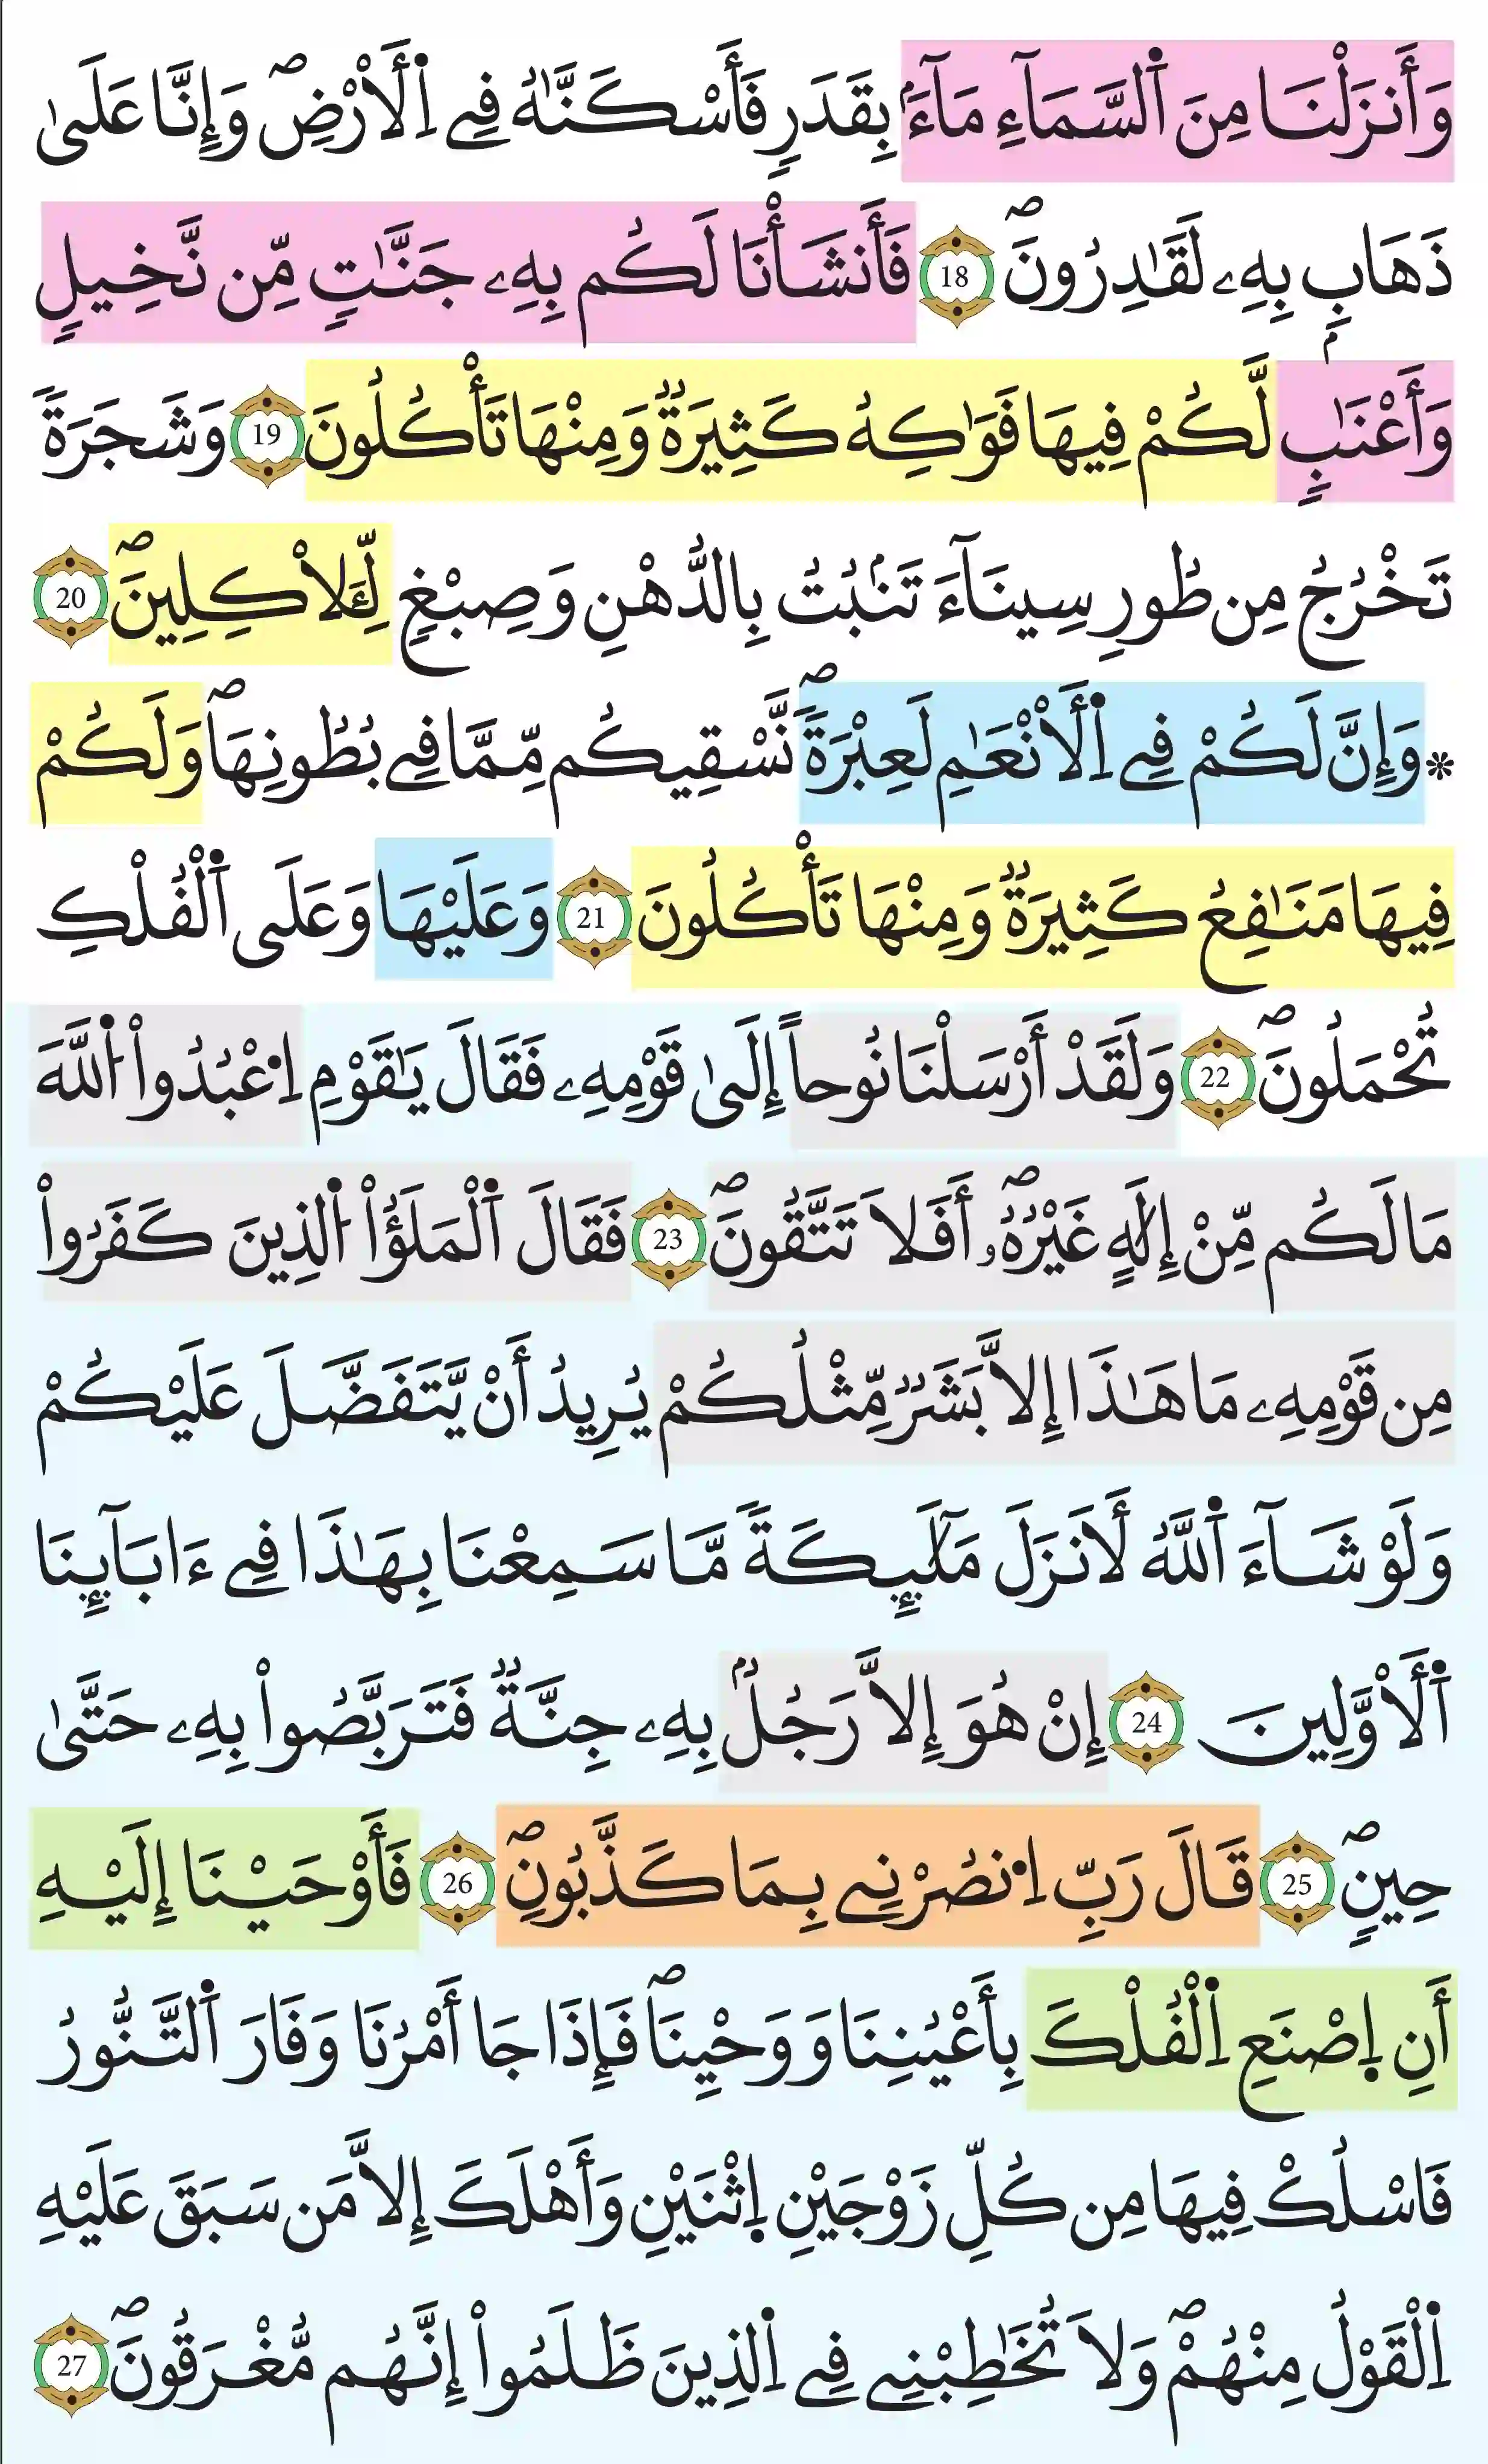 وَأَنزَلْنَا مِنَ اَ۬لسَّمَآءِ مَآءَۢ بِقَدَرٖ فَأَسْكَنَّٰهُ فِے اِ۬لَارْضِۖ وَإِنَّا عَلَىٰ
ذَهَابِۢ بِهِۦ لَقَٰدِرُونَۖ 18 فَأَنشَأْنَا لَكُم بِهِۦ جَنَّٰتٖ مِّن نَّخِيلٖ
وَأَعْنَٰبٖ لَّكُمْ فِيهَا فَوَٰكِهُ كَثِيرَةٞ وَمِنْهَا تَأْكُلُونَ 19 وَشَجَرَةٗ
تَخْرُجُ مِن طُورِ سِينَآءَ تَنۢبُتُ بِالدُّهْنِ وَصِبْغٖ لِّلَاكِلِينَۖ 20
* وَإِنَّ لَكُمْ فِے اِ۬لَانْعَٰمِ لَعِبْرَةٗۖ نَّسْقِيكُم مِّمَّا فِے بُطُونِهَاۖ وَلَكُمْ
فِيهَا مَنَٰفِعُ كَثِيرَةٞ وَمِنْهَا تَأْكُلُونَ 21 وَعَلَيْهَا وَعَلَى اَ۬لْفُلْكِ
تُحْمَلُونَۖ 22 وَلَقَدْ أَرْسَلْنَا نُوحاً إِلَىٰ قَوْمِهِۦ فَقَالَ يَٰقَوْمِ اِ۟عْبُدُواْ اُ۬للَّهَ
مَا لَكُم مِّنْ إِلَٰهٍ غَيْرُهُۥۖ أَفَلَا تَتَّقُونَۖ 23 فَقَالَ اَ۬لْمَلَؤُاْ اُ۬لذِينَ كَفَرُواْ
مِن قَوْمِهِۦ مَا هَٰذَا إِلَّا بَشَرٞ مِّثْلُكُمْ يُرِيدُ أَنْ يَّتَفَضَّلَ عَلَيْكُمْ
وَلَوْ شَآءَ اَ۬للَّهُ لَأَنزَلَ مَلَٰٓئِكَةٗ مَّا سَمِعْنَا بِهَٰذَا فِے ءَابَآئِنَا
اَ۬لَاوَّلِينَ 24 إِنْ هُوَ إِلَّا رَجُلُۢ بِهِۦ جِنَّةٞ فَتَرَبَّصُواْ بِهِۦ حَتَّىٰ
حِينٖۖ 25 قَالَ رَبِّ اِ۟نصُرْنِے بِمَا كَذَّبُونِۖ 26 فَأَوْحَيْنَا إِلَيْهِ
أَنِ اِ۪صْنَعِ اِ۬لْفُلْكَ بِأَعْيُنِنَا وَوَحْيِنَاۖ فَإِذَا جَا أَمْرُنَا وَفَارَ اَ۬لتَّنُّورُ
فَاسْلُكْ فِيهَا مِن كُلِّ زَوْجَيْنِ اِ۪ثْنَيْنِ وَأَهْلَكَ إِلَّا مَن سَبَقَ عَلَيْهِ
اِ۬لْقَوْلُ مِنْهُمْۖ وَلَا تُخَٰطِبْنِے فِے اِ۬لذِينَ ظَلَمُواْ إِنَّهُم مُّغْرَقُونَۖ 27